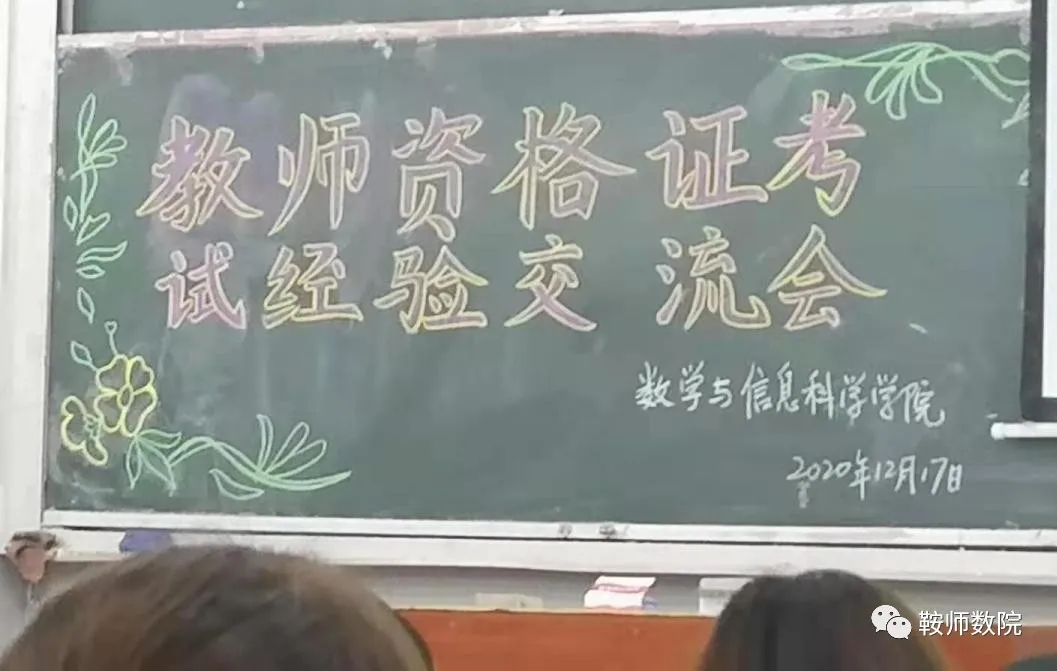 教师资格证考
试经验交流会
数学与信息科学学院
2020年12月17日
鞍师数院